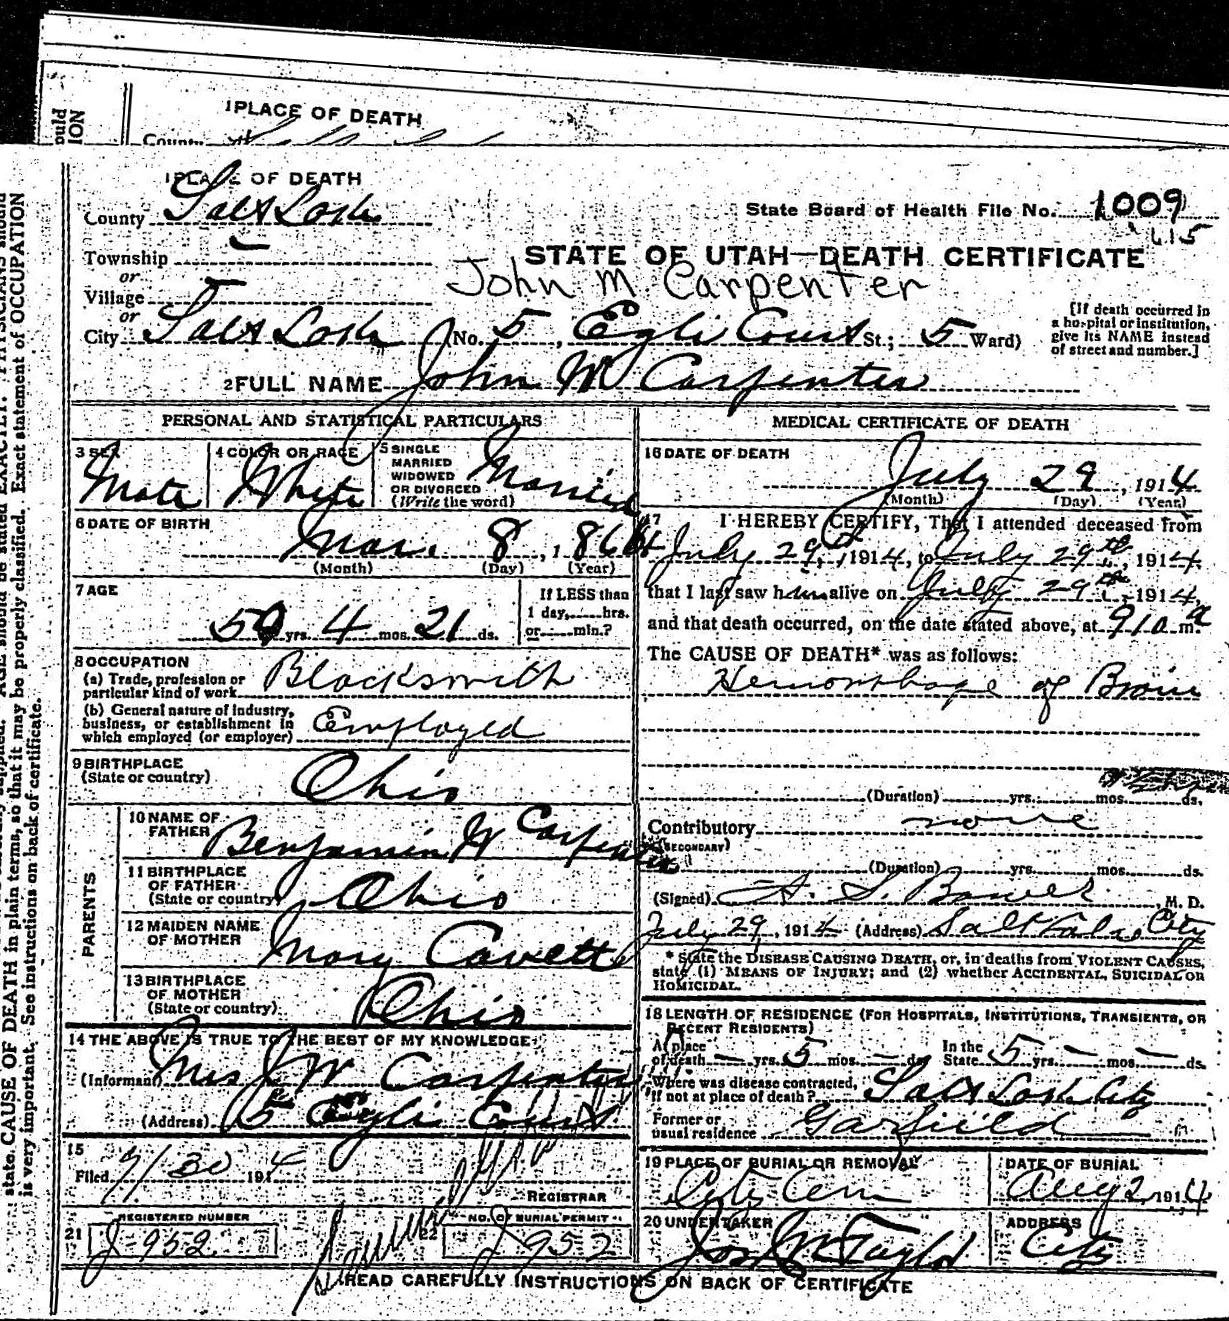 1 PLACE OF DEATH
County
1 PLACE OF DEATH
County Salt Lake
State Board of Health File No. 1009
615
Township
or
STATE OF UTAH—DEATH CERTIFICATE
John M Carpenter
Village
or
City Salt Lake (No. 5, Egli Court St.; 5 Ward)
[If death occurred in a hospital or institution, give its NAME instead of street and number.]
2 FULL NAME John W Carpenter
PERSONAL AND STATISTICAL PARTICULARS
3 SEX Male
4 COLOR OR RACE White
5 SINGLE MARRIED WIDOWED OR DIVORCED (Write the word) Married
6 DATE OF BIRTH Mar. 8, 1864
(Month) (Day) (Year)
7 AGE
50 yrs. 4 mos. 21 ds.
If LESS than 1 day, hrs. or min.?
8 OCCUPATION
(a) Trade, profession or particular kind of work Blacksmith
(b) General nature of industry, business, or establishment in which employed (or employer) Employed
9 BIRTHPLACE (State or country) Ohio
PARENTS
10 NAME OF FATHER Benjamin W Carpenter
11 BIRTHPLACE OF FATHER (State or country) Ohio
12 MAIDEN NAME OF MOTHER Mary Cavett
13 BIRTHPLACE OF MOTHER (State or country) Ohio
14 THE ABOVE IS TRUE TO THE BEST OF MY KNOWLEDGE
(Informant) Mrs J W Carpenter
(Address) 5 Egli Court
15
Filed 7/30 1914
REGISTRAR
REGISTERED NUMBER
21 J-952
NO. OF BURIAL PERMIT
22 J 952
MEDICAL CERTIFICATE OF DEATH
16 DATE OF DEATH
July 29, 1914
(Month) (Day) (Year)
17 I HEREBY CERTIFY, That I attended deceased from
July 29th, 1914, to July 29th, 1914
that I last saw him alive on July 29th, 1914,
and that death occurred, on the date stated above, at 910 a m.
The CAUSE OF DEATH* was as follows:
Hemorrhage of Brain
(Duration) yrs. mos. ds.
Contributory none
(SECONDARY)
(Duration) yrs. mos. ds.
(Signed) A. S. Bower, M. D.
July 29, 1914 (Address) Salt Lake City
* State the DISEASE CAUSING DEATH, or, in deaths from VIOLENT CAUSES, state (1) MEANS OF INJURY; and (2) whether ACCIDENTAL, SUICIDAL OR HOMICIDAL.
18 LENGTH OF RESIDENCE (FOR HOSPITALS, INSTITUTIONS, TRANSIENTS, OR RECENT RESIDENTS)
At place of death — yrs. 5 mos. — ds. In the State 5 yrs. — mos. — ds.
Where was disease contracted, If not at place of death? Salt Lake City
Former or usual residence Garfield
19 PLACE OF BURIAL OR REMOVAL City Cem
DATE OF BURIAL Aug 2 1914
20 UNDERTAKER Jos Wm Taylor
ADDRESS City
READ CAREFULLY INSTRUCTIONS ON BACK OF CERTIFICATE
state CAUSE OF DEATH in plain terms, so that it may be properly classified. Exact statement of OCCUPATION
is very important. See instructions on back of certificate.